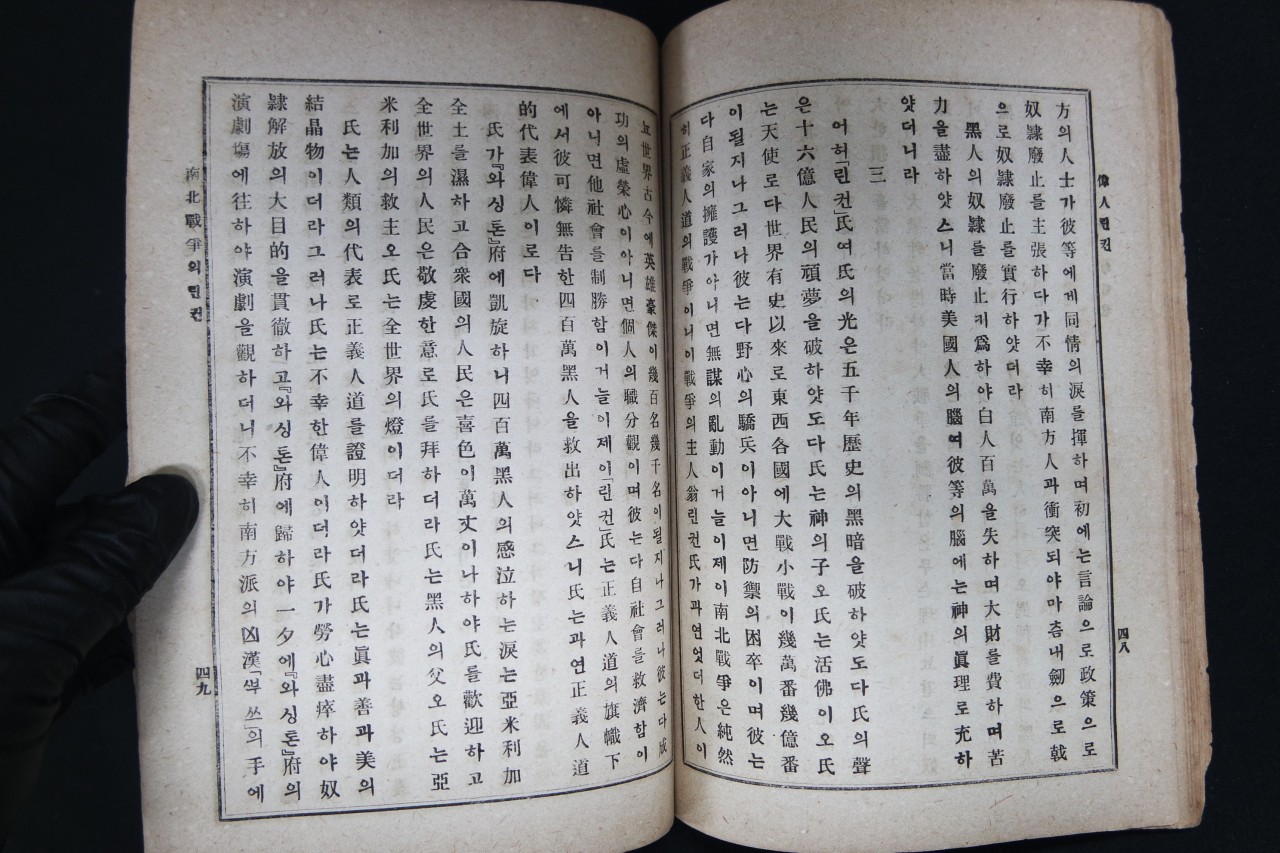 偉人린컨
四八
方의人士가彼等에게同情의淚를揮하며初에는言論으로政策으로
奴隸廢止를主張하다가不幸히南方人과衝突되야마츰내劍으로戟
으로奴隸廢止를實行하얏더라
黑人의奴隸를廢止키爲하야白人百萬을失하며大財를費하며苦
力을盡하얏스니當時美國人의腦여彼等의腦에는神의眞理로充하
얏더니라
三
어허「린컨」氏여氏의光은五千年歷史의黑暗을破하얏도다氏의聲
은十六億人民의頑夢을破하얏도다氏는神의子오氏는活佛이오氏
는天使로다世界有史以來로東西各國에大戰小戰이幾萬番幾億番
이될지나그러나彼는다野心의驕兵이아니면防禦의困卒이며彼는
다自家의擁護가아니면無謀의亂動이거늘이제이南北戰爭은純然
히正義人道의戰爭이니이戰爭의主人翁린컨氏가과연엇더한人이
뇨世界古今에英雄豪傑이幾百名幾千名이될지나그러나彼는다成
功의虛榮心이아니면個人의職分觀이며彼는다自社會를救濟함이
아니면他社會를制勝함이거늘이제이「린컨」氏는正義人道의旗幟下
에서彼可憐無告한四百萬黑人을救出하얏스니氏는과연正義人道
的代表偉人이로다
氏가『와싱톤』府에凱旋하니四百萬黑人의感泣하는淚는亞米利加
全土를濕하고合衆國의人民은喜色이萬丈이나하야氏를歡迎하고
全世界의人民은敬虔한意로氏를拜하더라氏는黑人의父오氏는亞
米利加의救主오氏는全世界의燈이더라
氏는人類의代表로正義人道를證明하얏더라氏는眞과善과美의
結晶物이더라그러나氏는不幸한偉人이더라氏가勞心盡瘁하야奴
隸解放의大目的을貫徹하고『와싱톤』府에歸하야一夕에『와싱톤』府의
演劇場에往하야演劇을觀하더니不幸히南方派의凶漢「쑤쓰」의手에
南北戰爭의린컨
四九